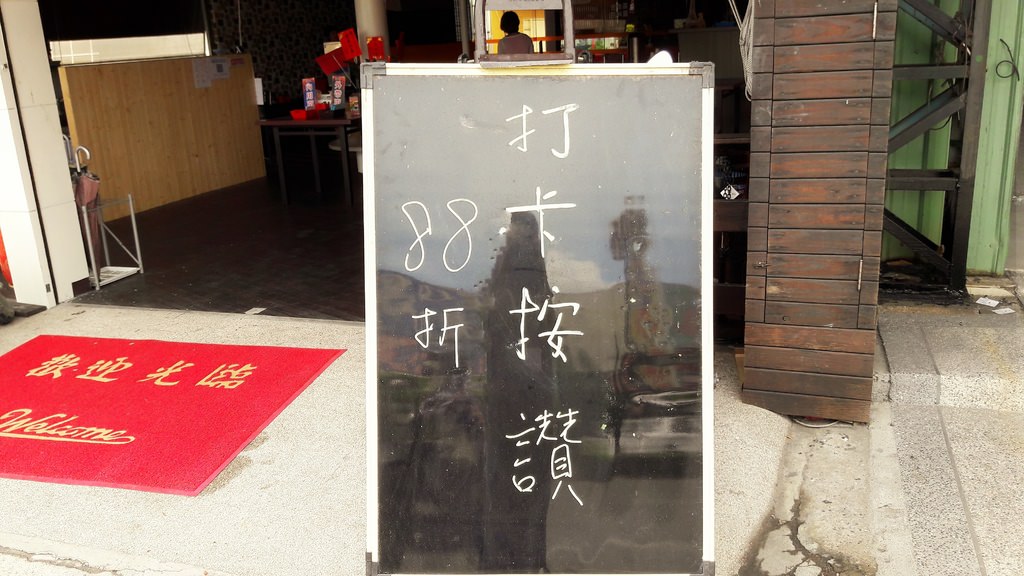 打卡按讚
88折
歡迎光臨
Welcome